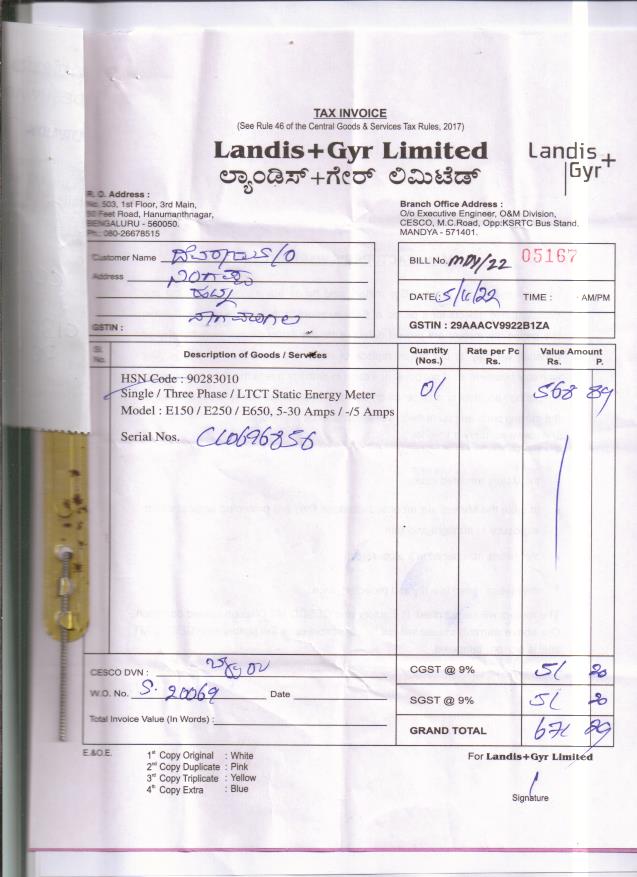 TAX INVOICE
(See Rule 46 of the Central Goods & Services Tax Rules, 2017)
Landis+Gyr Limited
ಲ್ಯಾಂಡಿಸ್+ಗೇರ್ ಲಿಮಿಟೆಡ್
Landis+
Gyr
R. O. Address :
No. 503, 1st Floor, 3rd Main,
80 Feet Road, Hanumanthnagar,
BENGALURU - 560050.
Ph.: 080-26678515
Branch Office Address :
O/o Executive Engineer, O&M Division,
CESCO, M.C.Road, Opp:KSRTC Bus Stand.
MANDYA - 571401.
Customer Name
Address
GSTIN :
BILL No. MDY/22 05167
DATE 5/11/22 TIME : AM/PM
GSTIN : 29AAACV9922B1ZA
Sl. No. Description of Goods / Services Quantity (Nos.) Rate per Pc Rs. Value Amount Rs. P.
HSN Code : 90283010 01 568 89
Single / Three Phase / LTCT Static Energy Meter
Model : E150 / E250 / E650, 5-30 Amps / -/5 Amps
Serial Nos. CL0696856
CESCO DVN :
CGST @ 9% 51 20
W.O. No. S. 20069 Date
SGST @ 9% 51 20
Total Invoice Value (In Words) :
GRAND TOTAL 671 29
E.&O.E.
1st Copy Original : White
2nd Copy Duplicate : Pink
3rd Copy Triplicate : Yellow
4th Copy Extra : Blue
For Landis+Gyr Limited
Signature